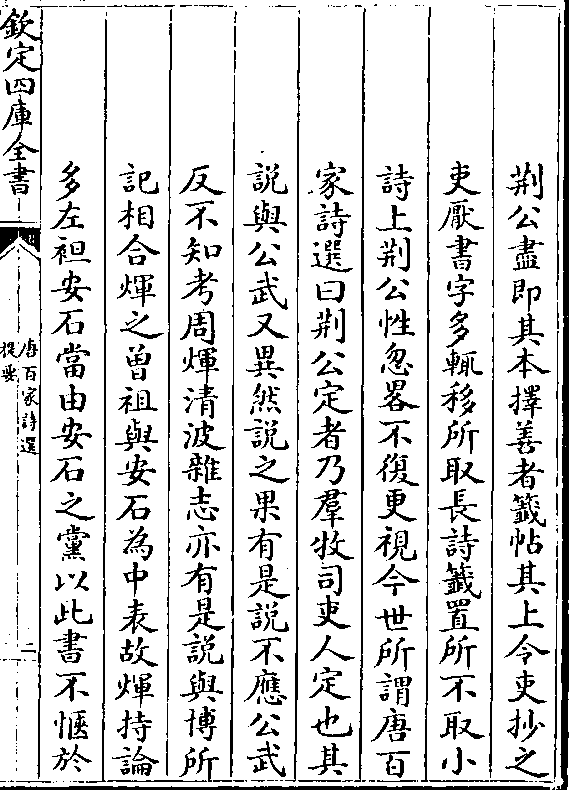 荆公盡即其本擇善者籖帖其上令吏抄之
吏厭書字多輒移所取長詩籖置所不取小
詩上荆公性忽畧不復更視今世所謂唐百
家詩選曰荆公定者乃羣牧司吏人定也其
說與公武又異然說之果有是說不應公武
反不知考周煇清波雜志亦有是說與博所
記相合煇之曾祖與安石為中表故煇持論
多左袒安石當由安石之黨以此書不愜於
欽定四庫全書
唐百家詩選
提要
二